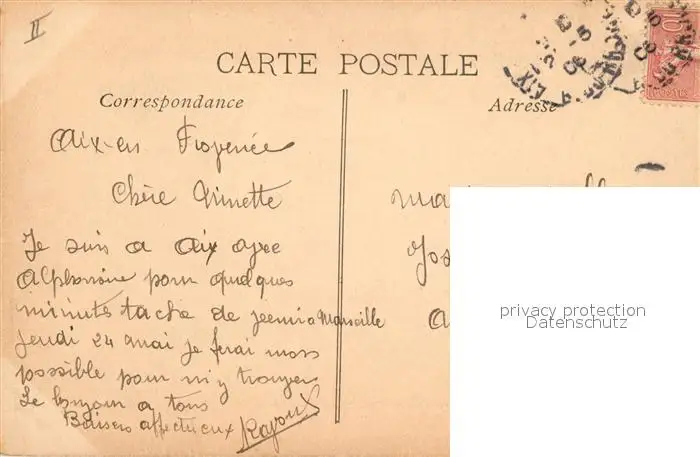 II
CARTE POSTALE
Correspondance
Adresse
10
POSTES
AIX
Aix-en Provence
Chère Ninette
Je suis a Aix avec
Alphonsine pour quelques
minutes tache de
a Marseille
Jeudi 24 mai je ferai mon
possible pour m'y trouver
Le bonjour a tous
Baisers affectueux
privacy protection
Datenschutz